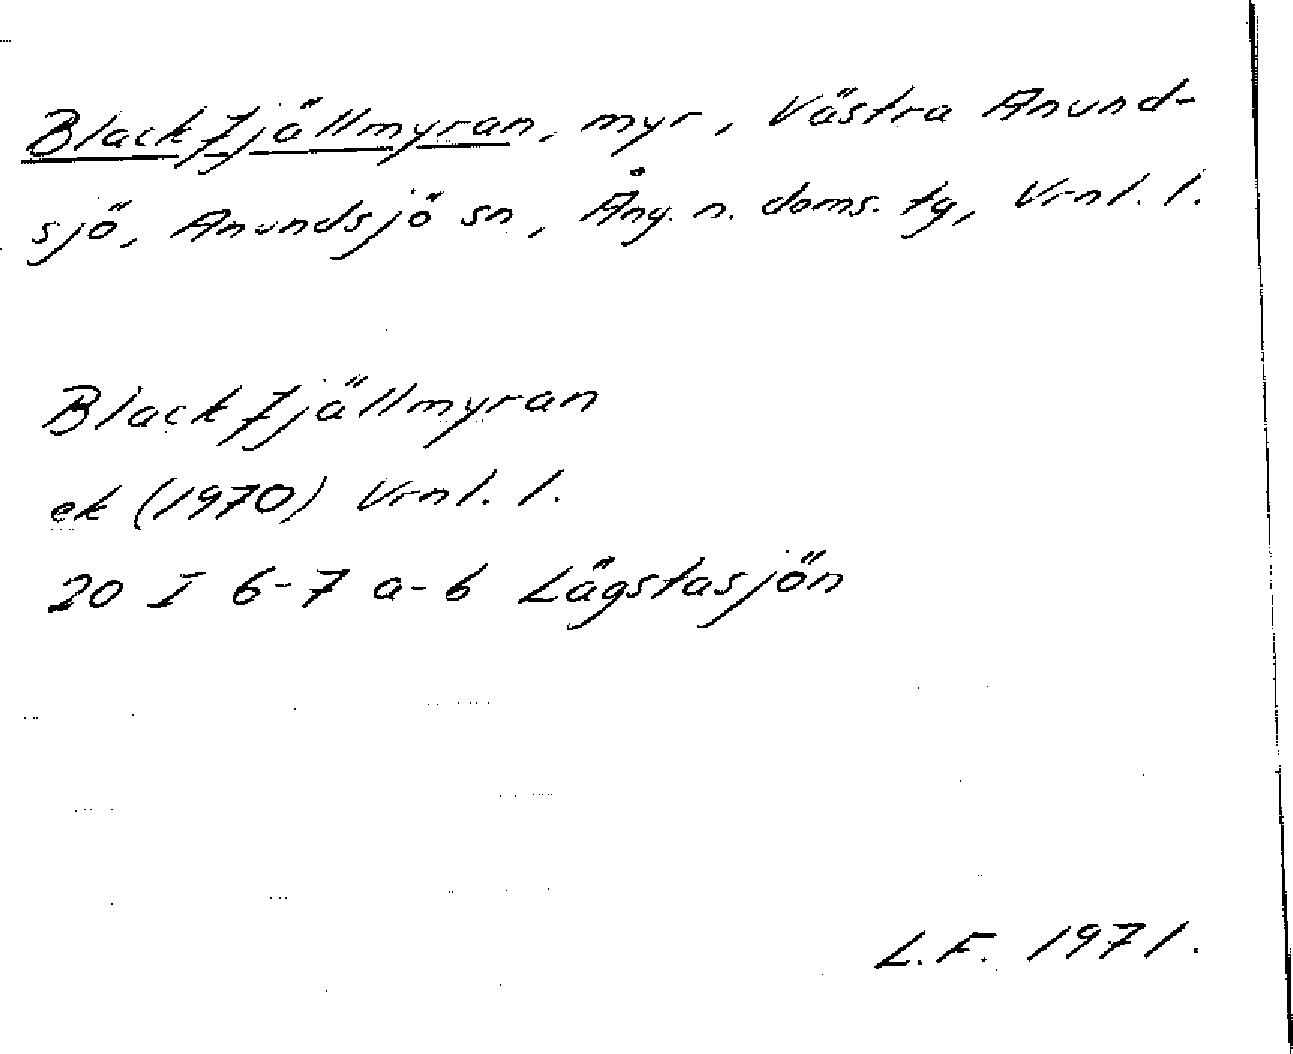 Blackfjällmyran, myr, Västra Anund-
sjö, Anundsjö sn, Ång. n. doms. tg, Vrnl. l.
Blackfjällmyran
ek (1970) Vrnl. l.
20 I 6-7 a-b Lägstasjön
L.F. 1971.